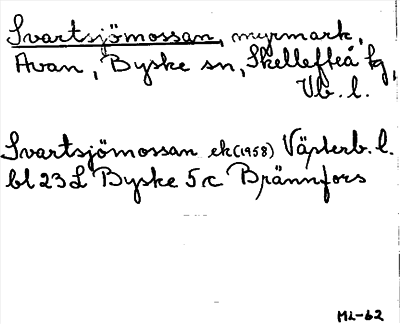 Svartsjömossan, myrmark,
Avan, Byske sn, Skellefteå kg,
Vb. l.
Svartsjömossan ek (1958) Västerb. l.
bl 23 L Byske 5 c Brännfors
ML-62